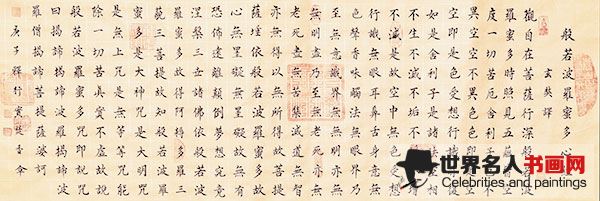 般若波羅蜜多心
玄奘譯
觀自在菩薩行深般若波
羅蜜多時照見五蘊皆
度一切苦厄舍利子色
異空空不異色色即是
空即是色受想行識
如是舍利子是諸法空相
不生不滅不垢不淨不增
不減是故空中無色受想
行識無眼耳鼻舌身意無
色聲香味觸法無眼界乃
至無意識界無無明亦無
無明盡乃至無老死亦無
老死盡無苦集滅道無智
亦無得以無所得故菩提
薩埵依般若波羅蜜多故
心無罣礙無罣礙故無有
恐怖遠離顛倒夢想究竟
涅槃三世諸佛依般若波
羅蜜多故得阿耨多羅三
藐三菩提故知般若波羅
蜜多是大神咒是大明咒
是無上咒是無等等咒能
除一切苦真實不虛故說
般若波羅蜜多咒即說咒
曰揭諦揭諦波羅揭諦波
羅僧揭諦菩提薩婆訶
庚子釋行
世界名人书画网
Celebrities and paintings